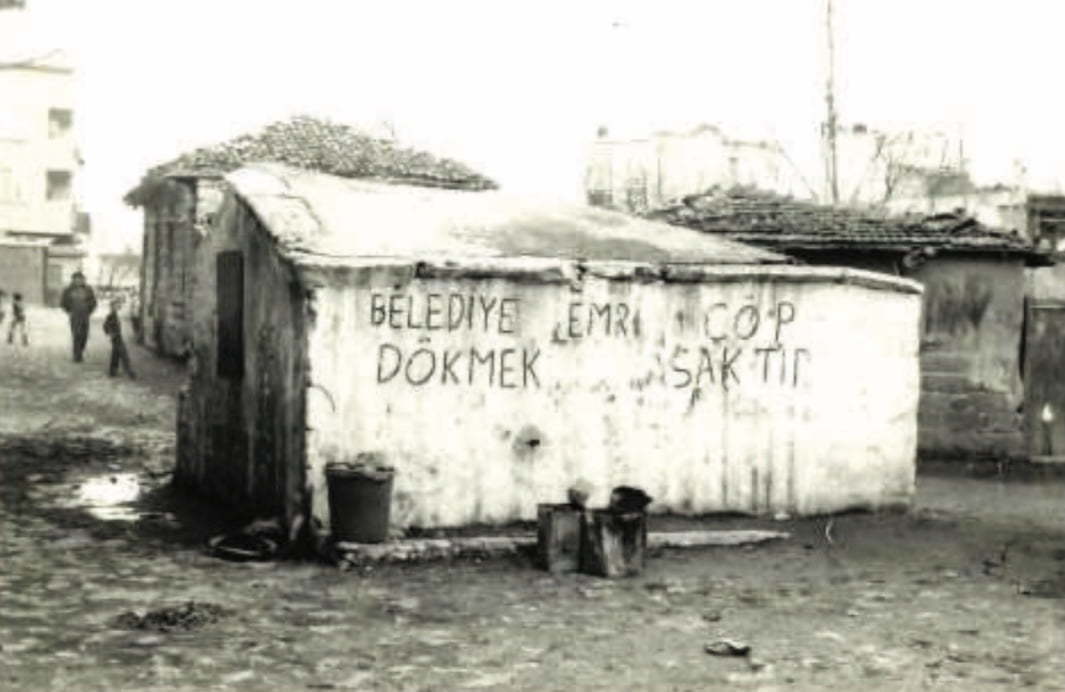 BELEDİYE EMRİ ÇÖP
DÖKMEK YASAKTIR